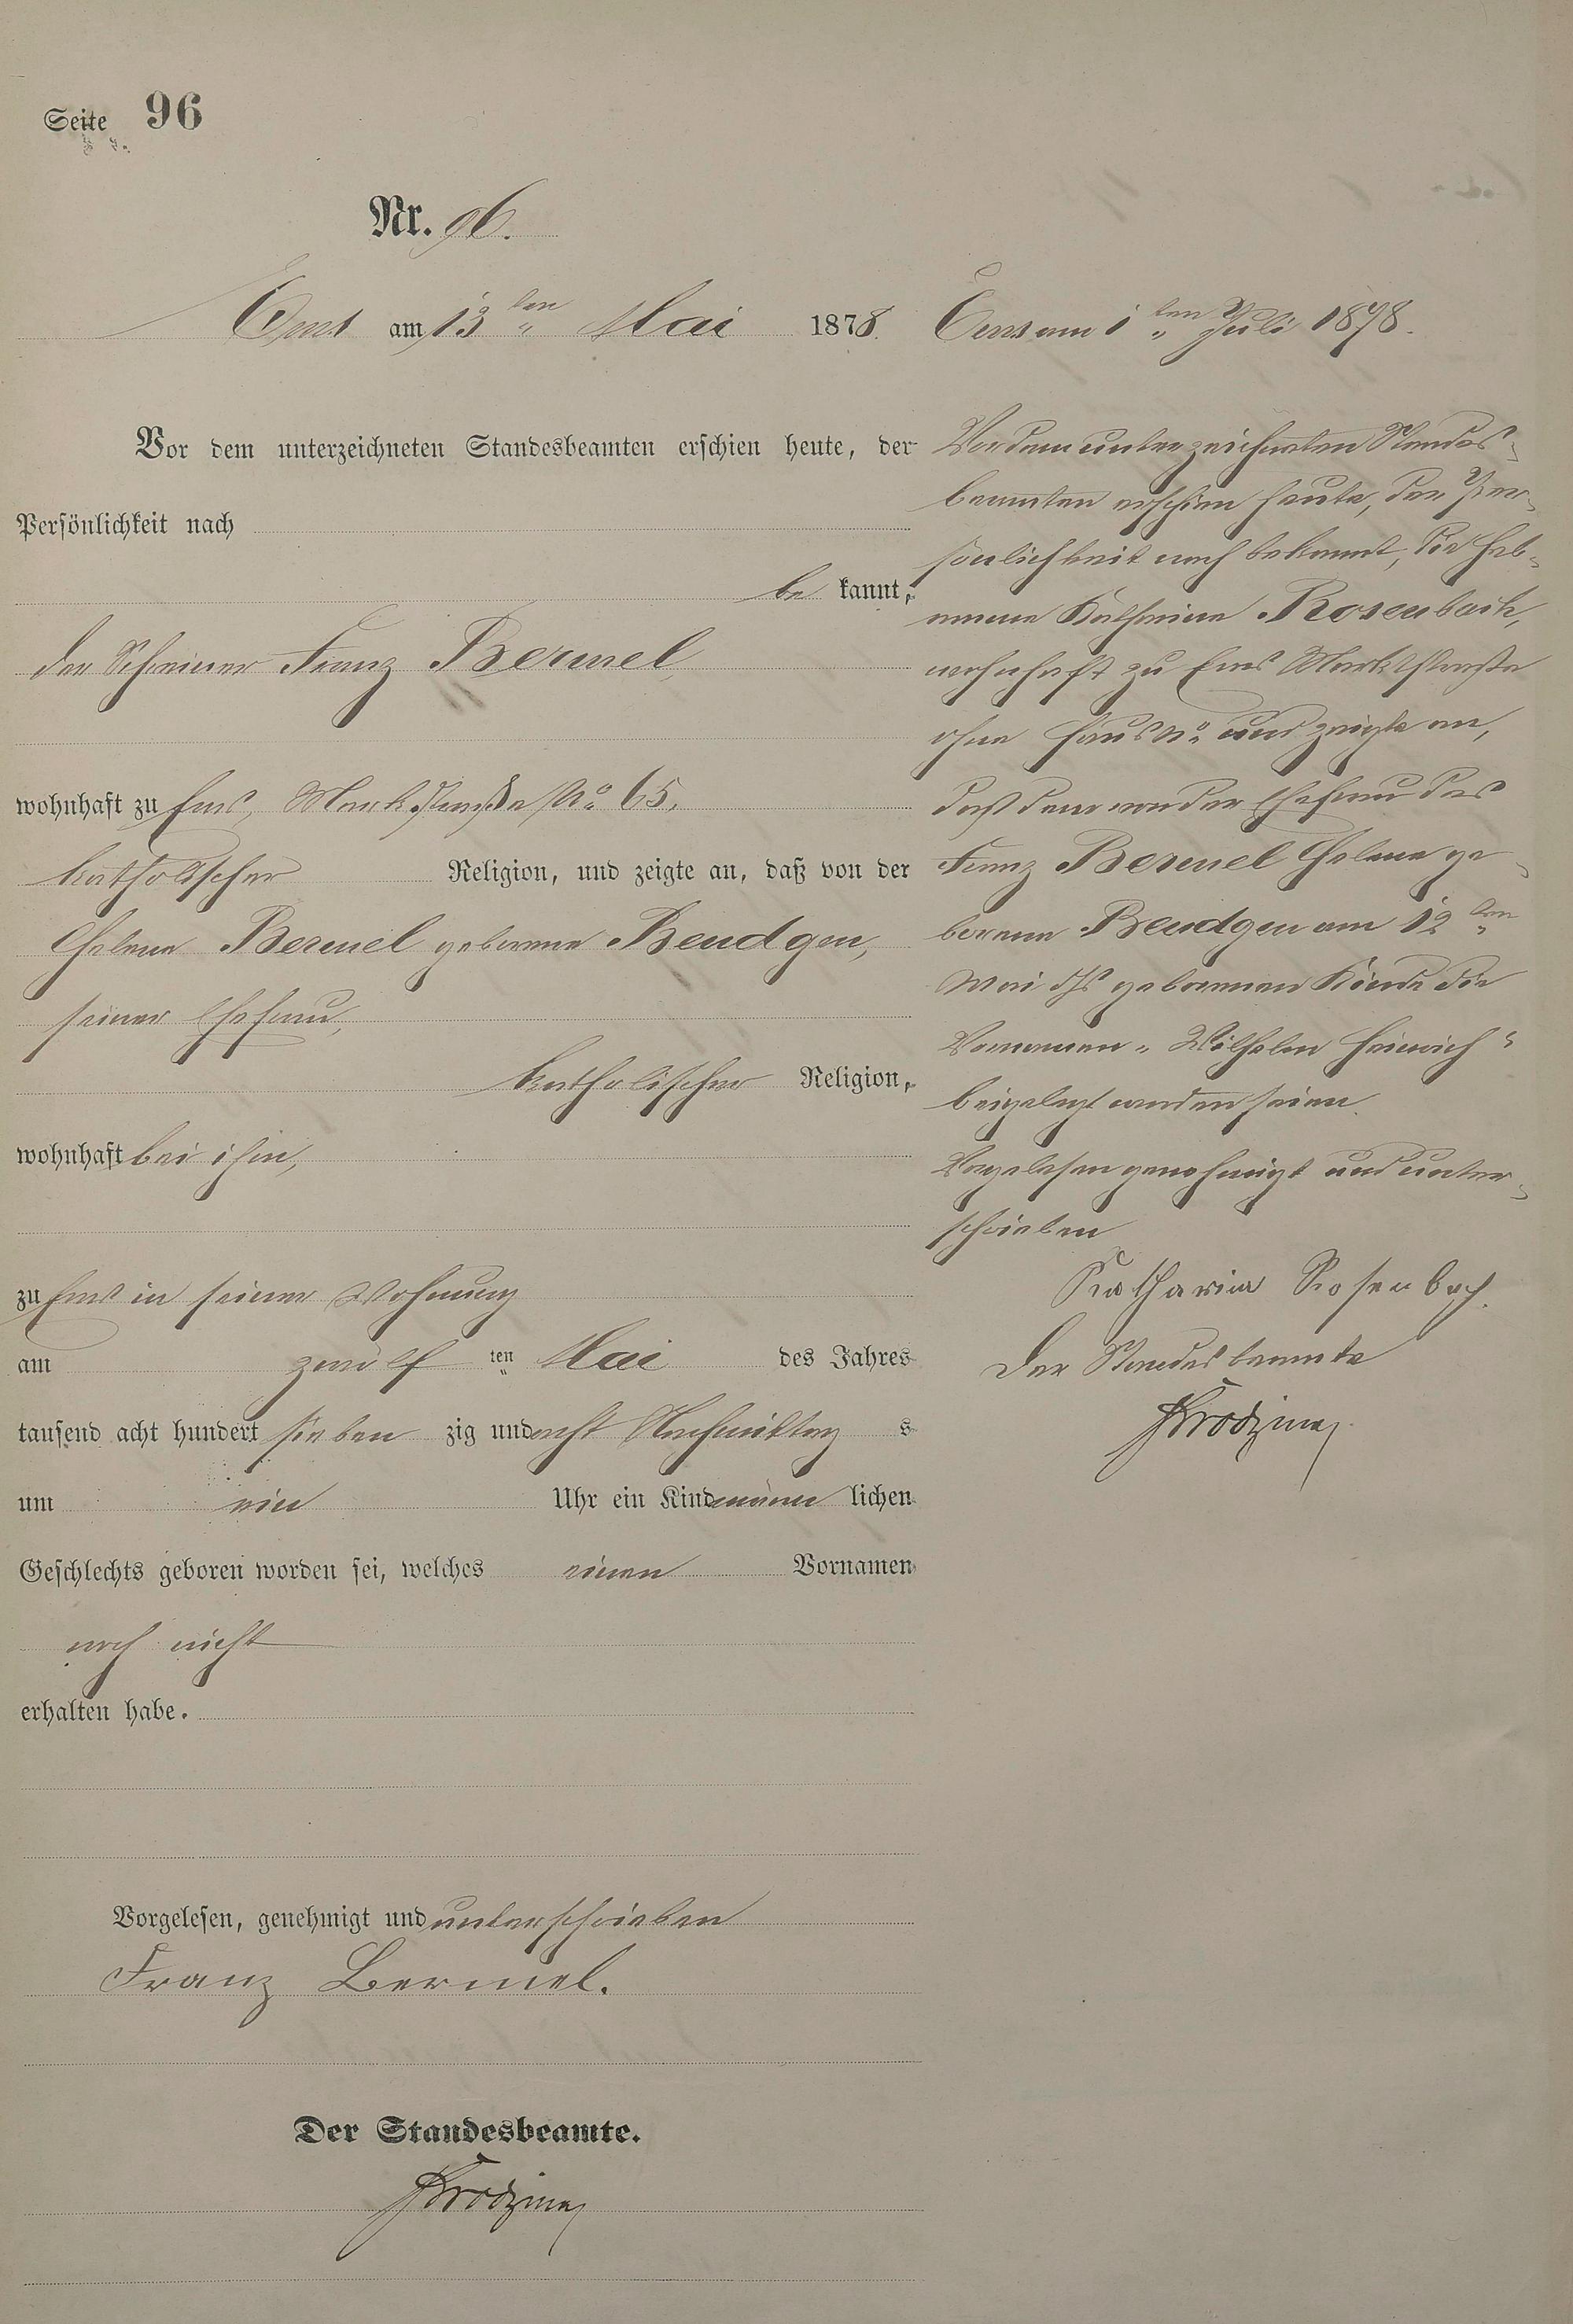 Seite 96
Nr. 96.
Ems am 13ten Mai 1878.
Vor dem unterzeichneten Standesbeamten erschien heute, der
Persönlichkeit nach
be kannt,
der Schreiner Franz Bermel,
wohnhaft zu Ems, Marktstraße No 65,
katholischer Religion, und zeigte an, daß von der
Helena Bermel geborene Bendgen,
seiner Ehefrau,
katholischer Religion,
wohnhaft bei ihm,
zu Ems in seiner Wohnung
am zwölf ten Mai des Jahres
tausend acht hundert sieben zig und acht Nachmittag s
um ein Uhr ein Kind männ lichen
Geschlechts geboren worden sei, welches einen Vornamen
noch nicht
erhalten habe.
Vorgelesen, genehmigt und unterschrieben
Franz Bermel.
Der Standesbeamte.
Ems am 1ten Juli 1878.
Vor dem unterzeichneten Standes-
beamten erschien heute, der Per-
sönlichkeit nach bekannt, die Heb-
amme Katharina Rosenbach,
wohnhaft zu Ems Marktstraße
ohne Haus No und zeigte an,
daß dem von der Ehefrau des
Franz Bermel Helena ge-
borene Bendgen am 12ten
Mai ds geborenen Kinde die
Vornamen „Wilhelm Heinrich“
beigelegt worden seien.
Vorgelesen genehmigt und unter-
schrieben
Katharina Rosenbach.
Der Standesbeamte